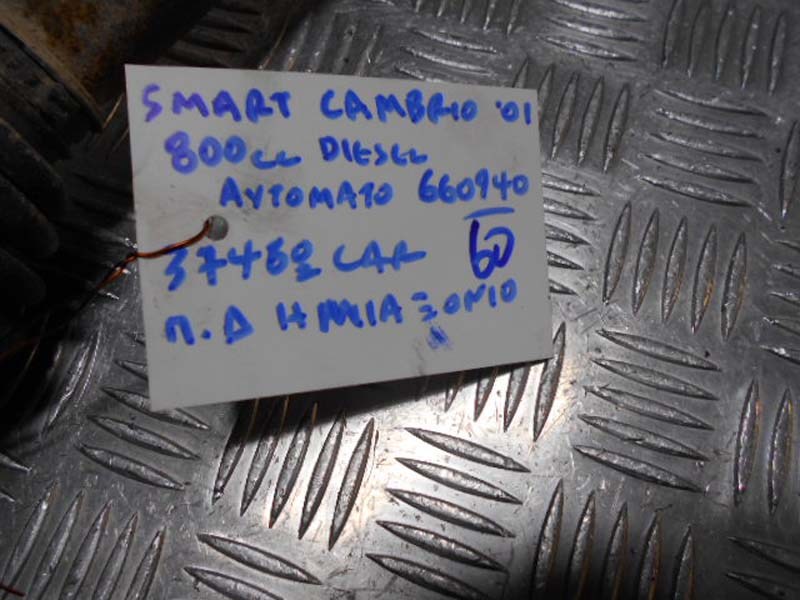 SMART CAMBRIO '01
800cc DIESEL
ΑΥΤΟΜΑΤΟ 660940
37460 CAR 60
Π.Δ ΗΜΙΑΞΟΝΙΟ